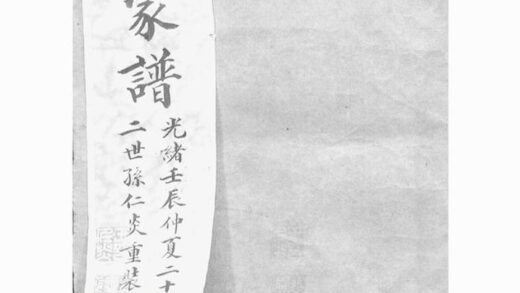 家譜
光緒壬辰仲夏二十
二世孫仁炎重裝